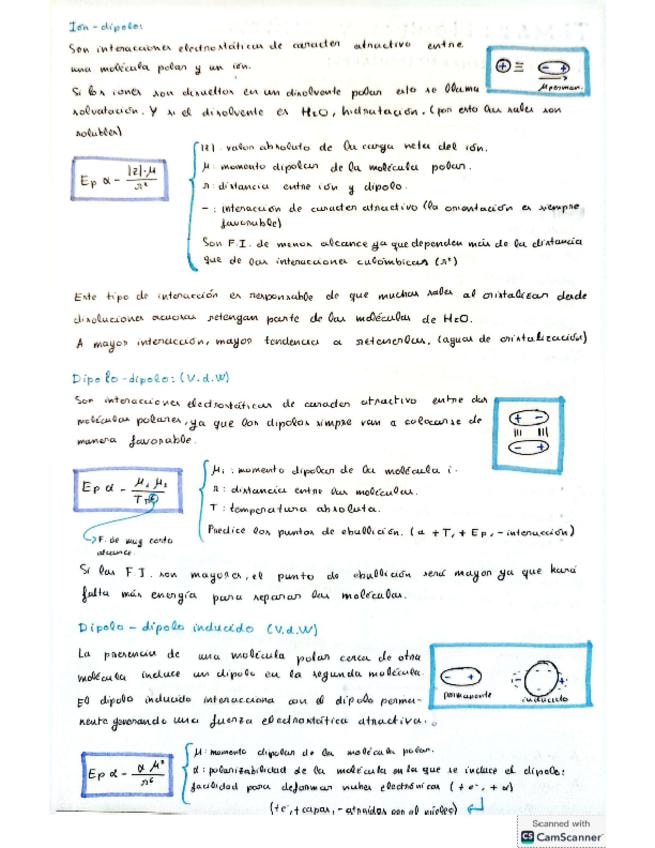 Ión-dipolo:
Son interacciones electrostáticas de caracter atractivo entre
una molécula polar y un ión.
⊕ ≡ - +
μ perman.
Si los iones son disueltos en un disolvente polar esto se llama
solvatación. Y si el disolvente es H2O, hidratación. (por esto las sales son
solubles)
Ep α - |z|·μ / r²
|z|: valor absoluto de la carga neta del ión.
μ: momento dipolar de la molécula polar.
r: distancia entre ión y dipolo.
-: interacción de caracter atractivo (la orientación es siempre
favorable)
Son F.I. de menor alcance ya que dependen más de la distancia
que de las interacciones culómbicas (r²)
Este tipo de interacción es responsable de que muchas sales al cristalizar desde
disoluciones acuosas retengan parte de las moléculas de H2O.
A mayor interacción, mayor tendencia a retenerlas. (aguas de cristalización)
Dipolo-dipolo: (V.d.W)
Son interacciones electrostáticas de caracter atractivo entre dos
moléculas polares, ya que los dipolos simpre van a colocarse de
manera favorable.
+ -
≡ ≡
- +
Ep α - μ1 μ2 / T r⁶
F. de muy corto
alcance.
μi: momento dipolar de la molécula i.
r: distancia entre las moléculas.
T: temperatura absoluta.
Predice los puntos de ebullición. (a +T, +Ep, - interacción)
Si las F.I. son mayores, el punto de ebullición será mayor ya que hará
falta más energía para separar las moléculas.
Dipolo - dipolo inducido (V.d.W)
La presencia de una molécula polar cerca de otra
molécula induce un dipolo en la segunda molécula.
El dipolo inducido interacciona con el dipolo perma-
nente generando una fuerza electrostática atractiva.
- +
permanente
inducido
Ep α - α μ² / r⁶
μ: momento dipolar de la molécula polar.
α: polarizabilidad de la molécula en la que se induce el dipolo:
facilidad para deformar nubes electrónicas (+ e⁻, + α)
(+e⁻, + capas, - atraidos por el núcleo)
Scanned with
CS CamScanner